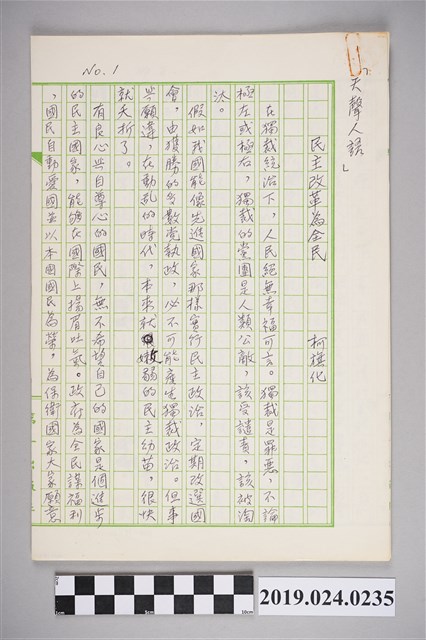 No. 1
「天聲人語」
民主改革為全民
柯旗化
在獨裁統治下，人民絕無幸福可言。獨裁是罪惡，不論
極左或極右，獨裁的黨團是人類公敵，該受譴責，該被淘
汰。
假如我國能像先進國家那樣實行民主政治，定期改選國
會，由獲勝的多數党執政，必不可能產生獨裁政治。但事
與願違，在動乱的時代，本來就嫩弱的民主幼苗，很快
就夭折了。
有良心与自尊心的國民，無不希望自己的國家是個進步
的民主國家，能夠在國際上揚眉吐氣。政府為全民謀福利
，國民自動愛國並以本國國民為榮，為保衛國家大家願意
2019.024.0235